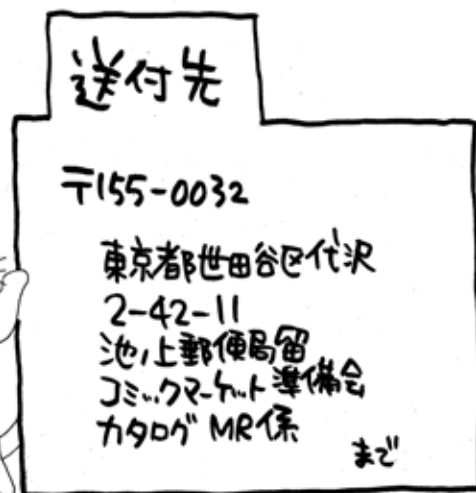 送付先
〒155-0032
東京都世田谷区代沢
2-42-11
池ノ上郵便局留
コミックマーケット準備会
カタログMR係
まで